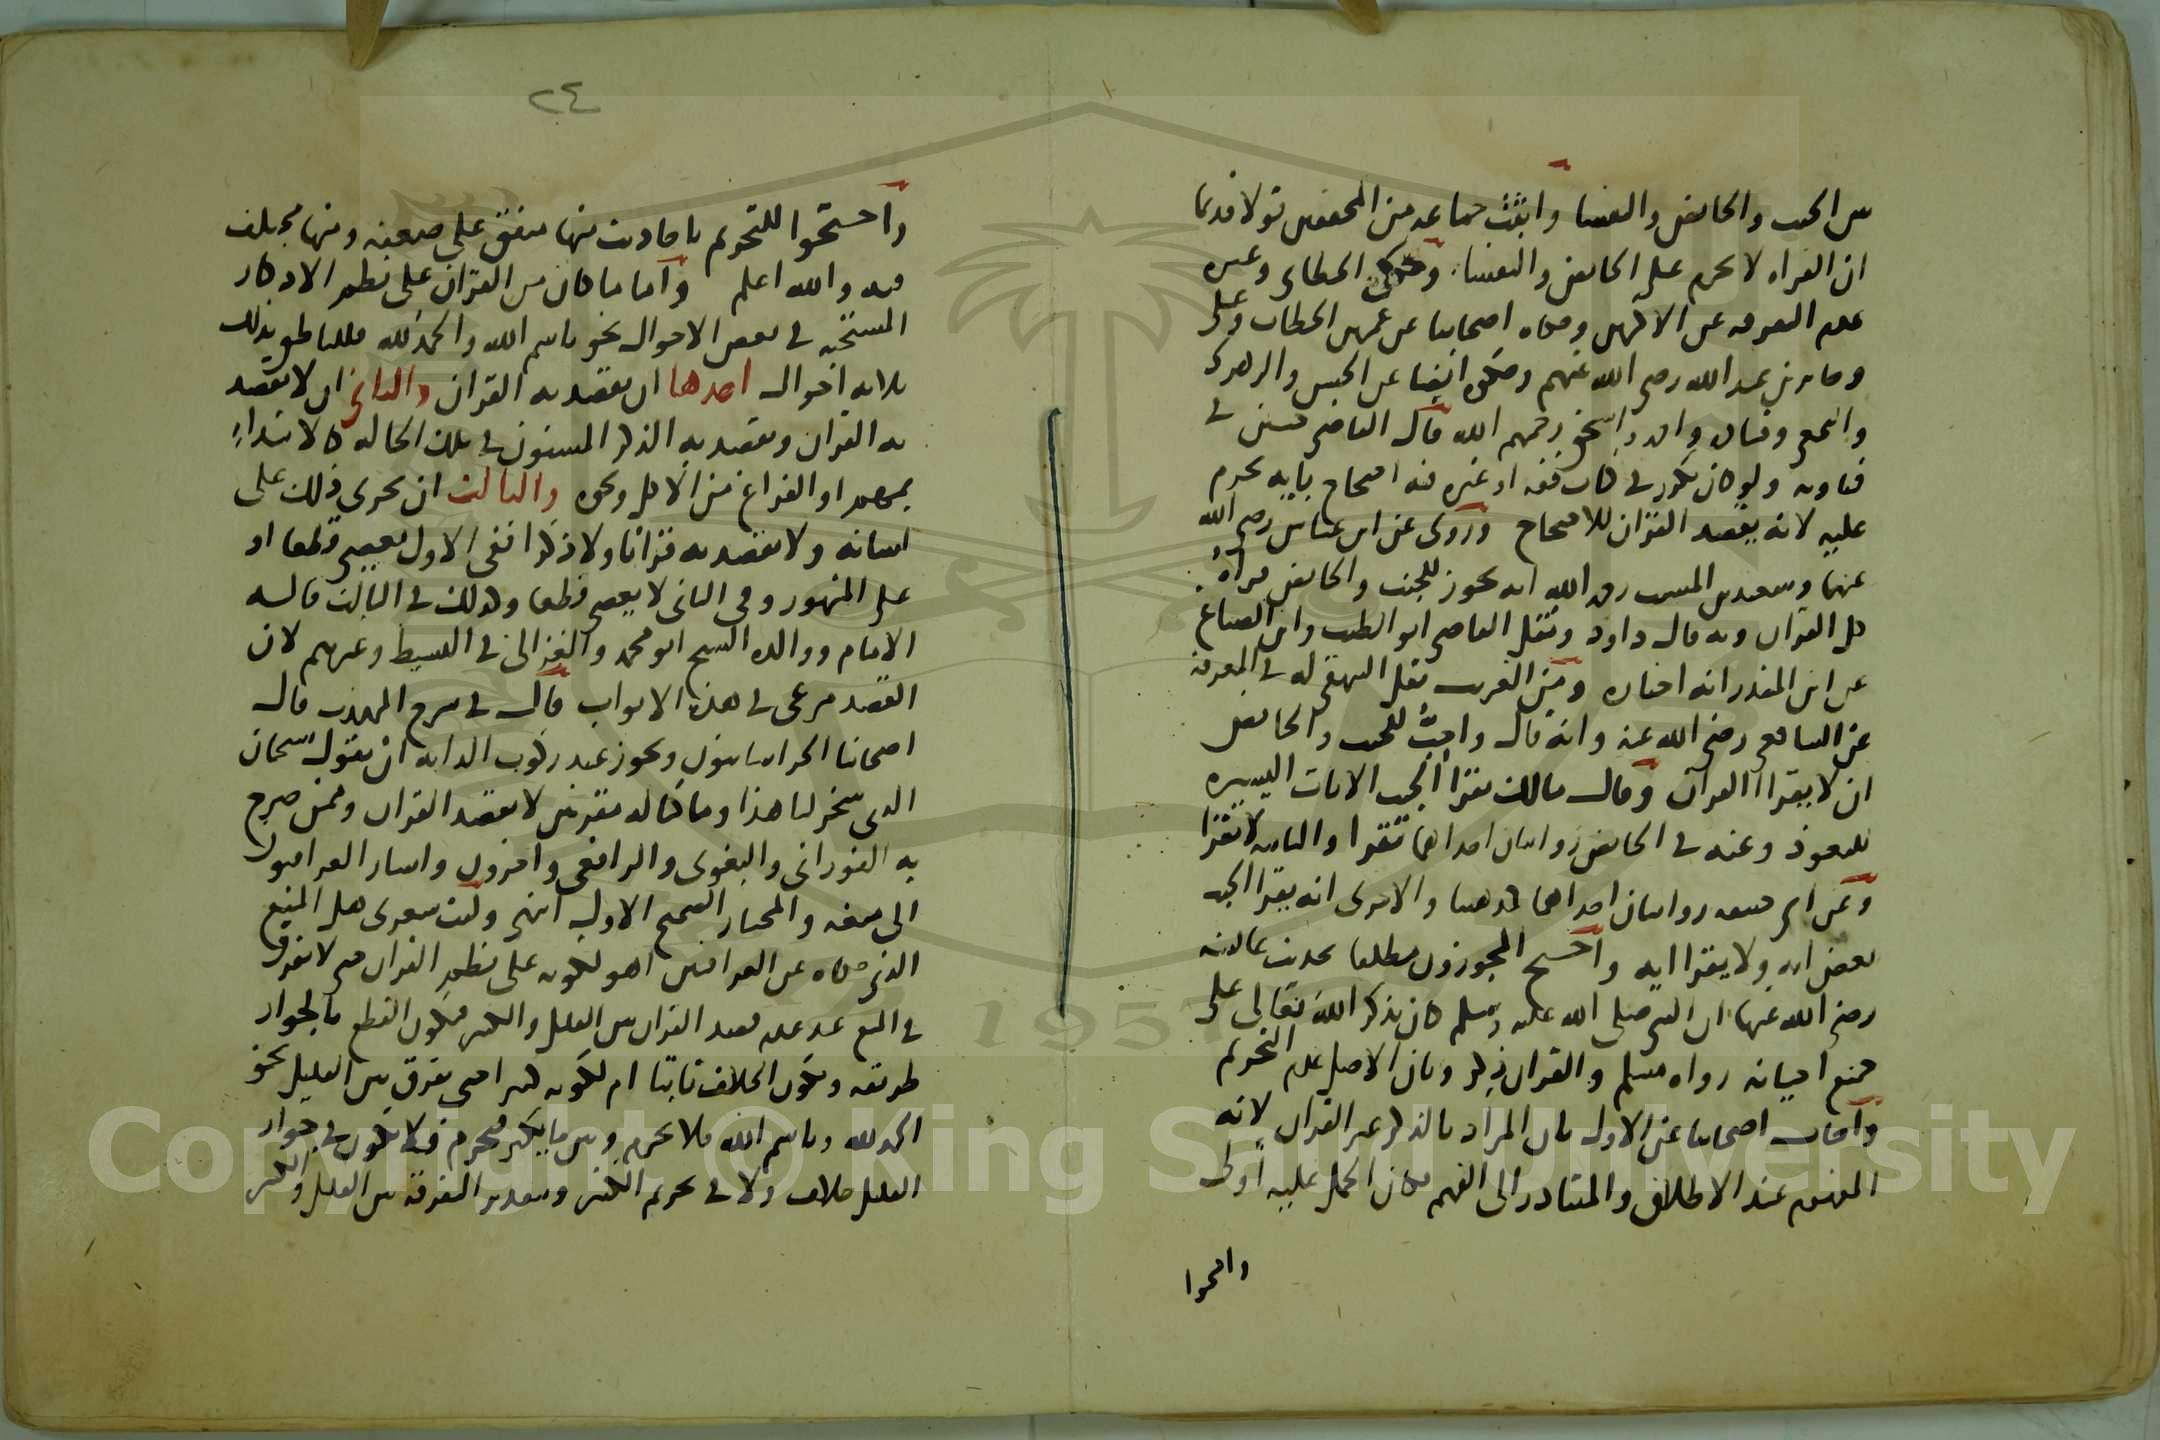 من الجنب والحائض والنفسا واثبت جماعه من المحققين قولا قديما
ان القراه لا تحرم على الحائض والنفساء وحكى الخطابي وغيره
عدم التفرقه عن الاكثرين وحكاه اصحابنا عن عمر بن الخطاب وعلى
وجابر بن عبد الله رضى الله عنهم وحكوه ايضا عن الحسن والزهرى
والنخعى وقتاده واحمد واسحق رحمهم الله قال القاضى حسين فى
فتاويه ولو كان يكرر فى كتاب فقه او غيره فيه احتجاج بايه تحرم
عليه لانه يقصد القران للاحتجاج وروى عن ابن عباس رضى الله
عنهما وسعيد بن المسيب رحمه الله انه يجوز للجنب والحائض قراة
كل القران وبه قال داود ونقل القاضى ابو الطيب وابن الصباغ
عن ابن المنذر انه اختاره ومن الغريب نقل البيهقى له فى المعرفة
عن الشافعى رضى الله عنه وانه قال واحب للجنب والحائض
ان لا يقرا القران وقال مالك يقرا الجنب الايات اليسيره
للتعوذ وعنه فى الحائض روايتان احداهما تقرا والثانيه لا تقرا
وعن ابى حنيفه روايتان احداهما كمذهبنا والاخرى انه يقرا الجنب
بعض ايه ولا يقرا ايه واحتج المجوزون مطلقا بحديث عائشه
رضى الله عنها ان النبى صلى الله عليه وسلم كان يذكر الله تعالى على
جميع احيانه رواه مسلم والقران ذكر وبان الاصل عدم التحريم
واجاب اصحابنا عن الاول بان المراد بالذكر غير القران لانه
المفهوم عند الاطلاق والمتبادر الى الفهم فكان الحمل عليه اولى
واحتجوا
٢٤
واحتجوا للتحريم باحاديث منها متفق على ضعفه ومنها مختلف
فيه والله اعلم واما ما كان من القران على نظم الاذكار
المستحبه فى بعض الاحوال نحو باسم الله والحمد لله فللناطق بذلك
ثلاثه احوال احدها ان يقصد به القران والثانى ان لا يقصد
به القران ويقصد به الذكر المسنون فى تلك الحاله كالابتداء
او الفراغ من الاكل ونحوه والثالث ان يجرى ذلك على
لسانه ولا يقصد به قرانا ولا ذكرا ففى الاول يعصى قطعا او
على المشهور وفى الثانى لا يعصى قطعا وكذلك فى الثالث قاله
الامام ووالده الشيخ ابو محمد والغزالى فى البسيط وغيرهم لان
القصد مرعى فى هذه الابواب قال فى شرح المهذب قال
اصحابنا الخراسانيون ويجوز عند ركوب الدابه ان يقول سبحان
الذى سخر لنا هذا وما كنا له مقرنين لا بقصد القران وممن صرح
به الفورانى والبغوى والرافعى واخرون واشار العراقيون
الى منعه والمختار الصحيح الاول انتهى وليت شعرى هل المنع
الذى حكاه عن العراقيين اهو لكونه على نظم القران حتى لا نفرق
فى المنع عند عدم قصد القران بين القليل والكثير فيكون القطع بالجواز
طريقه ويكون الخلاف ثابتا ام لكونه كثيرا حتى نفرق بين القليل نحو
الحمد لله وباسم الله فلا يحرم وبين ما يكثر فيحرم فلا يكون فى جواز
القليل خلاف ولا فى تحريم الكثير وبتقدير التفرقة بين القليل والكثير
Copyright © King Saud University
1957